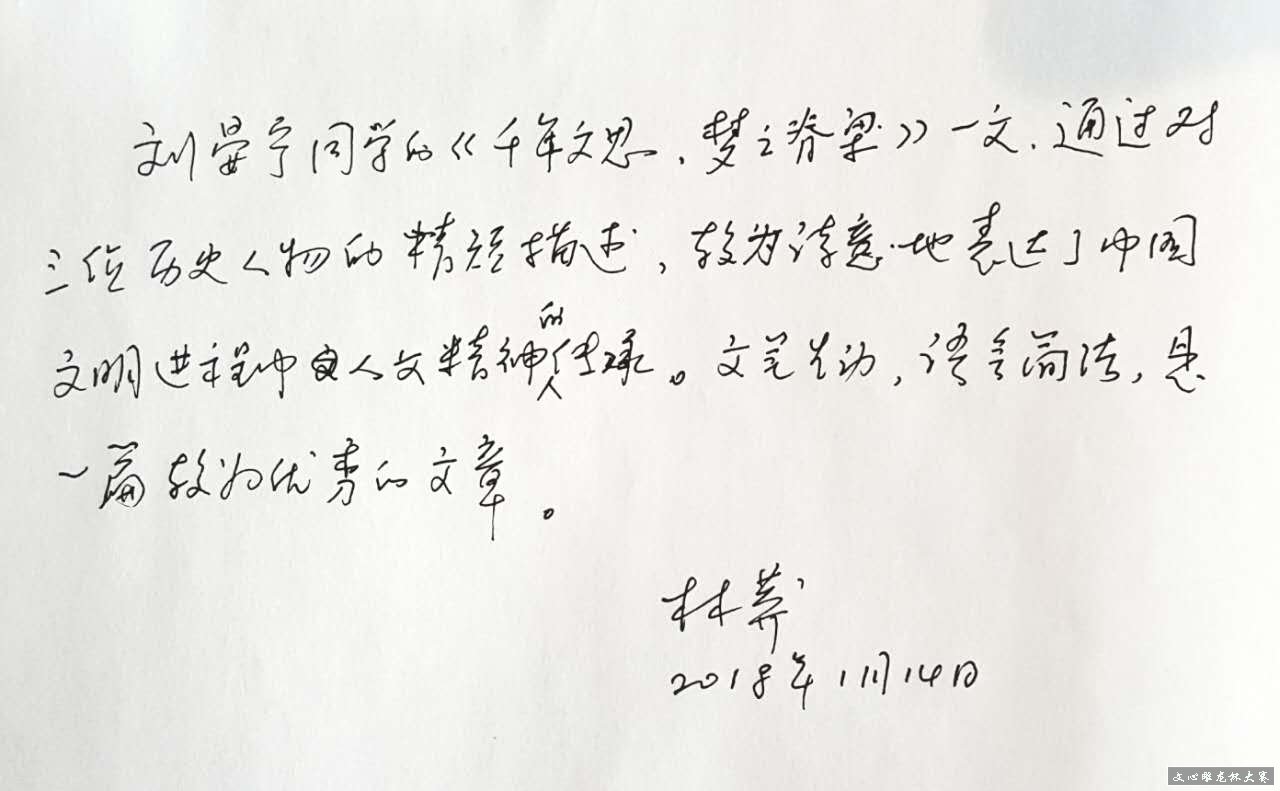 刘晏宁同学的《千年文思，梦之脊梁》一文，通过对
三位历史人物的精短描述，较为诗意地表达了中国
文明进程中人文精神的传承。文笔生动，语言简洁，是
一篇较为优秀的文章。
林莽
2018年11月14日
文心雕龙杯大赛